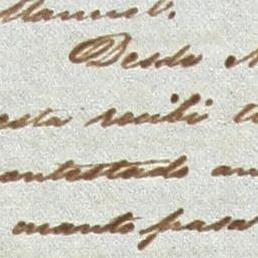 Manuel.
Desde
esta recibi
contestado
cuanto pasa